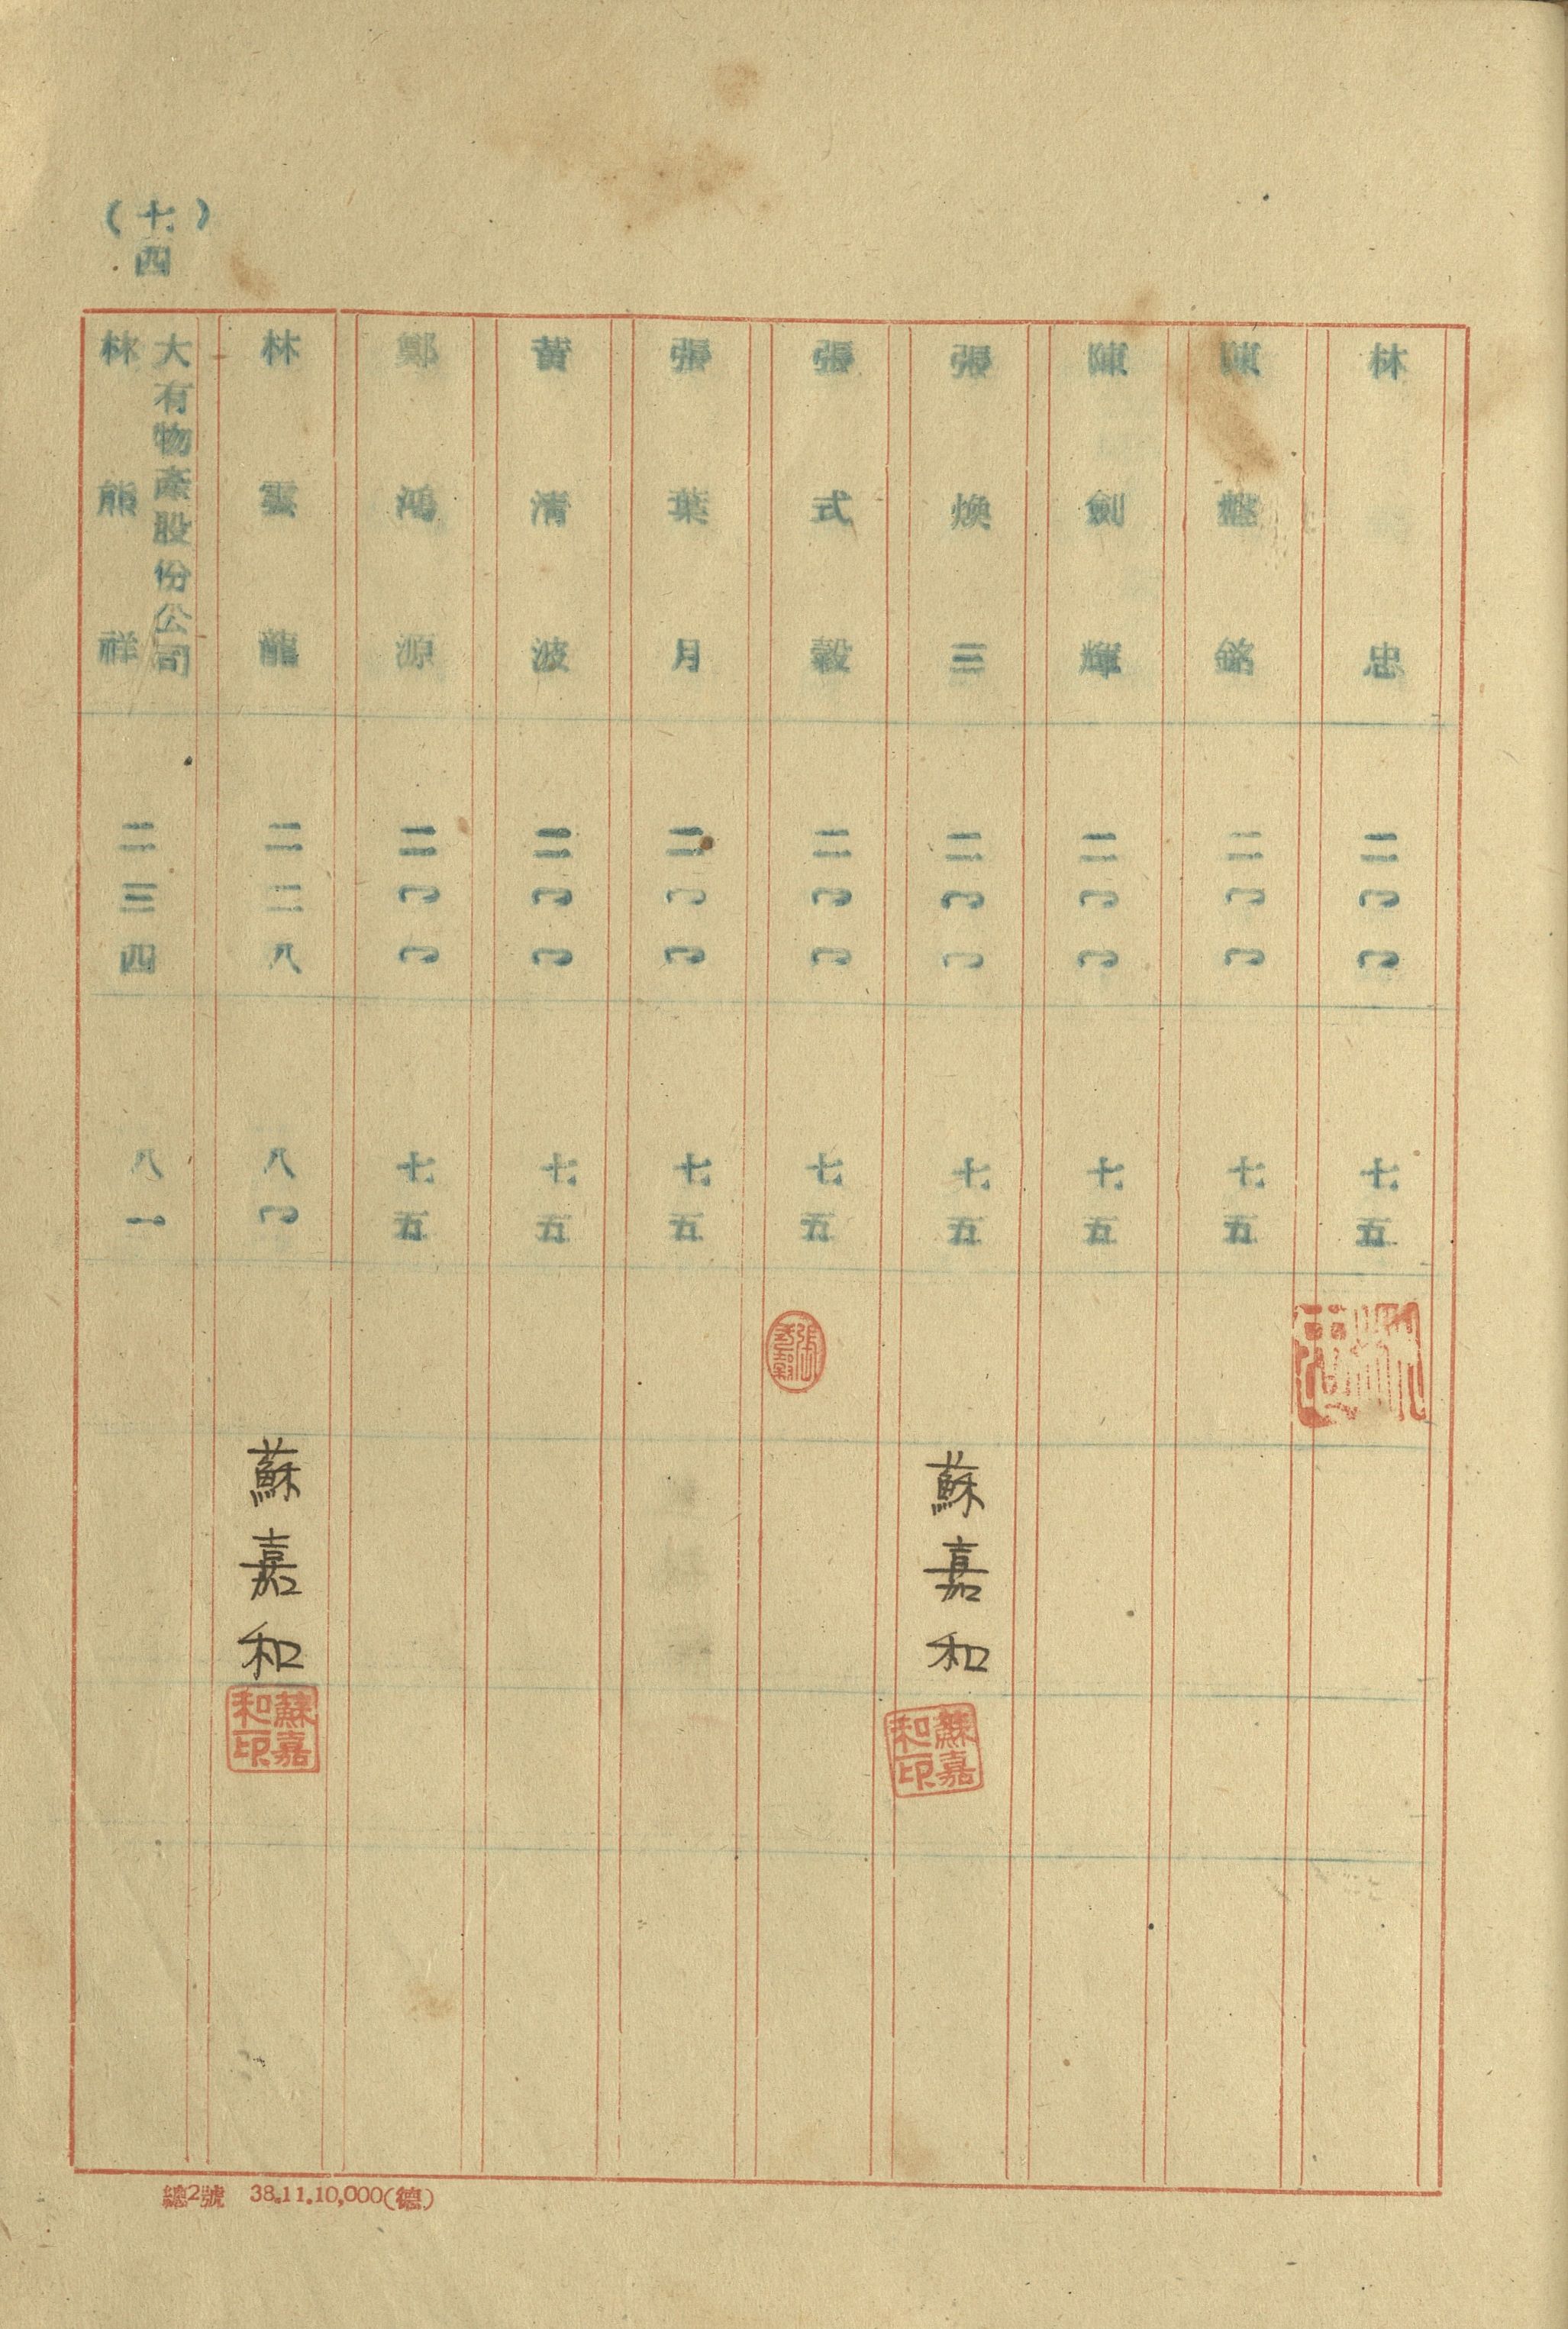 林忠 二〇〇 七五 林忠
陳盤銘 二〇〇 七五
陳劍輝 二〇〇 七五
張煥三 二〇〇 七五 蘇嘉和 蘇嘉和印
張式穀 二〇〇 七五 張式穀
張葉月 二〇〇 七五
黃清波 二〇〇 七五
鄭鴻源 二〇〇 七五
林雲龍 二二八 八〇 蘇嘉和 蘇嘉和印
大有物產股份公司
林熊祥 二三四 八一
(七四)
總2號 38.11.10,000(德)